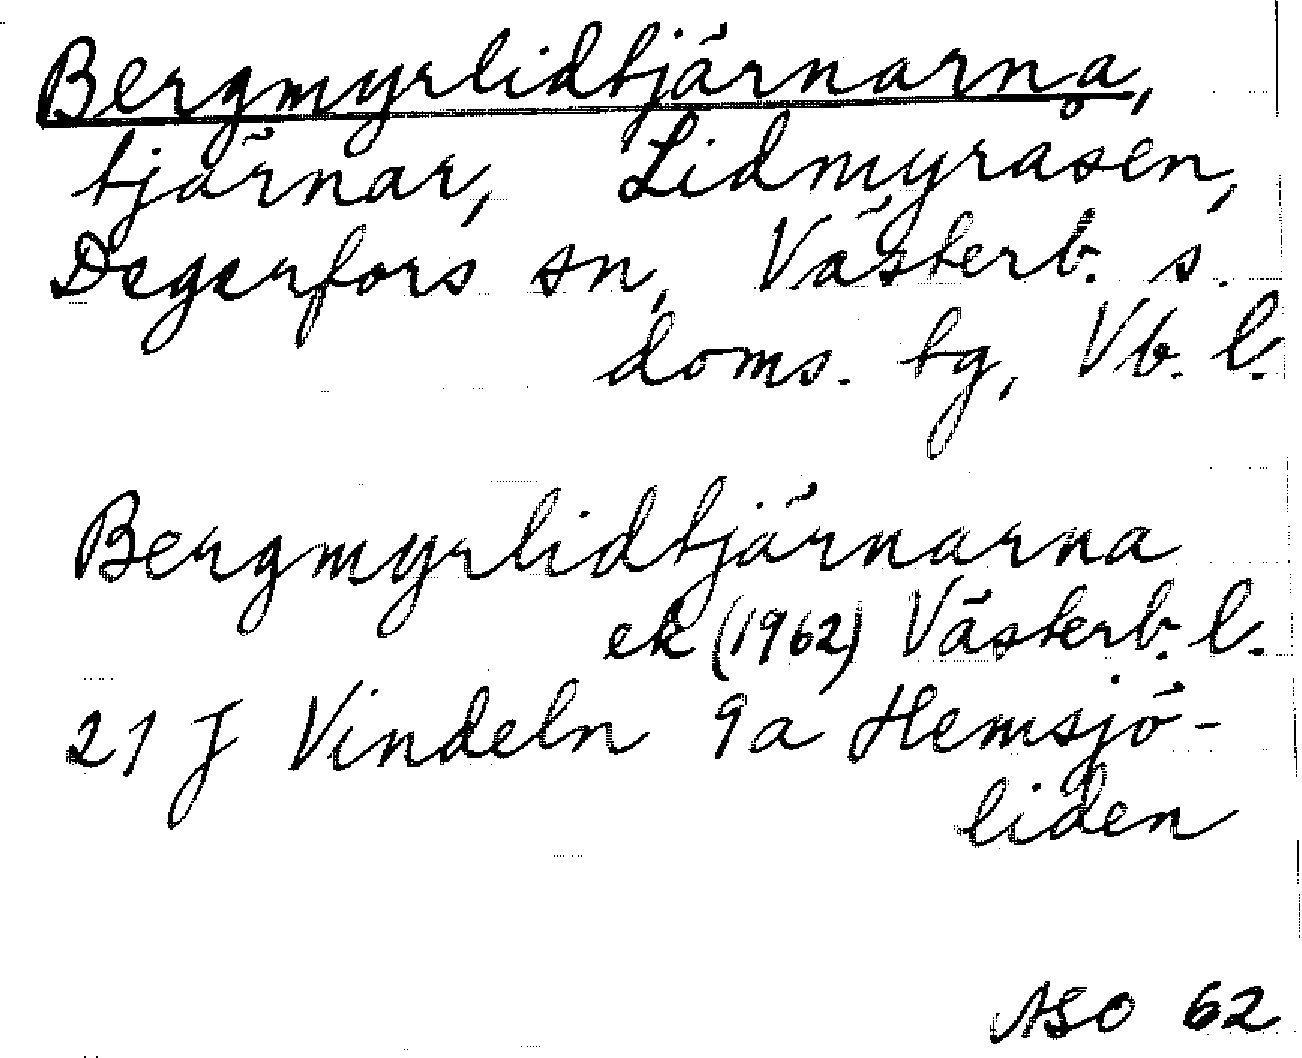 Bergmyrlidtjärnarna,
tjärnar, Lidmyråsen,
Degerfors sn, Västerb. s.
doms. tg, Vb. l.
Bergmyrlidtjärnarna
ek (1962) Västerb. l.
21 J Vindeln 9a Hemsjö-
liden
ASO 62